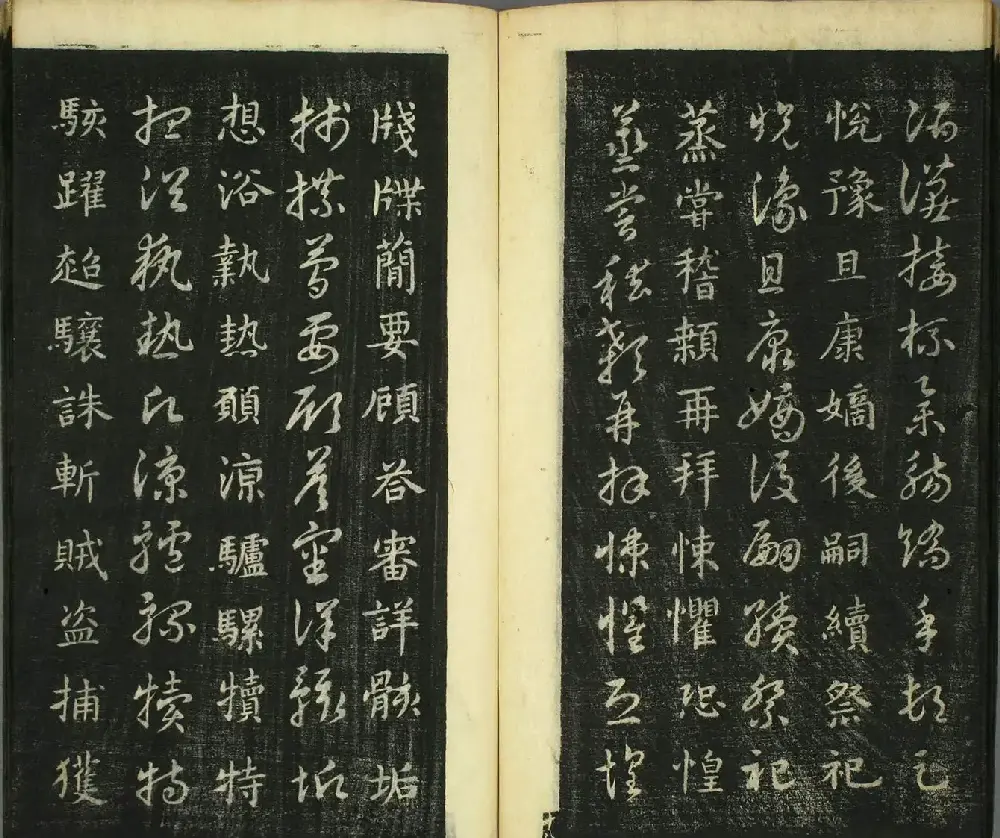 酒讌接杯舉觴矯手頓足
悅豫且康嫡後嗣續祭祀
悅豫且康嫡後嗣續祭祀
蒸甞稽顙再拜悚懼恐惶
蒸甞稽顙再拜悚懼恐惶
牋牒簡要顧荅審詳骸垢
牋牒簡要顧荅審詳骸垢
想浴執熱願涼驢騾犢特
想浴執熱願涼驢騾犢特
駭躍超驤誅斬賊盗捕獲